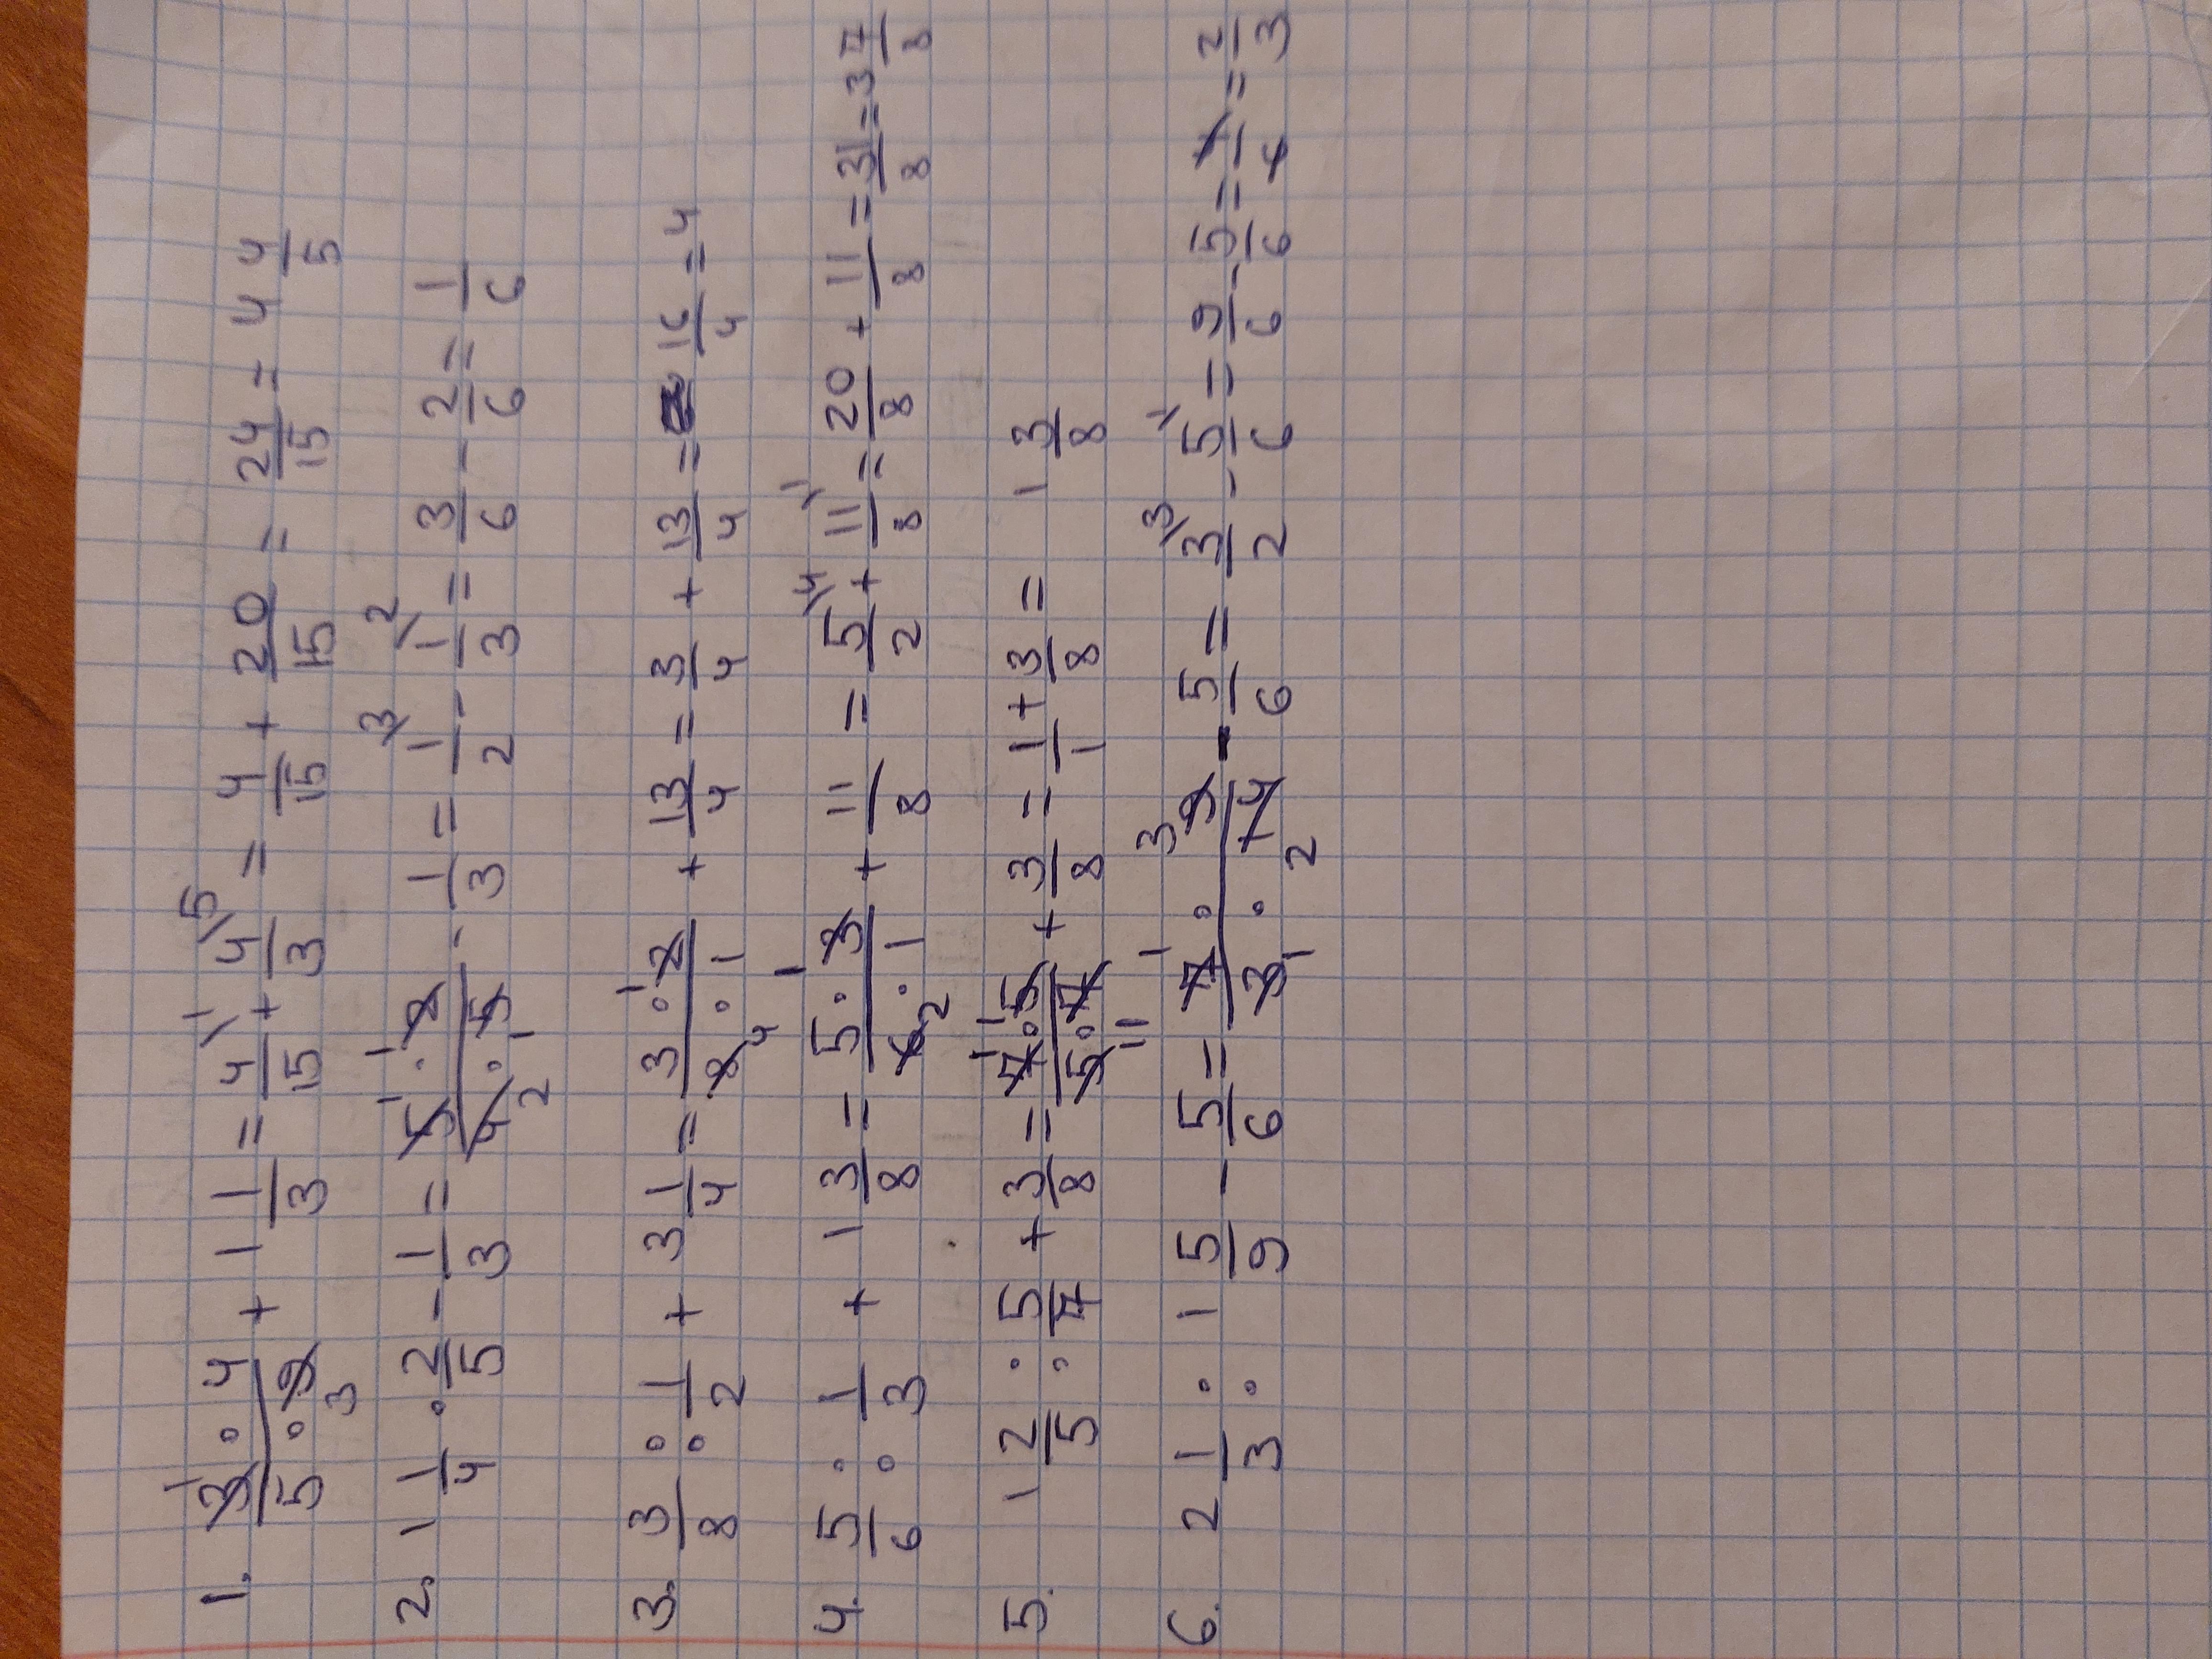 1. 3/5 · 4/9 + 1 1/3 = 4/15 + 4/3 = 4/15 + 20/15 = 24/15 = 4 4/5
2. 1 1/4 · 2/5 - 1/3 = 5·2/4·5 - 1/3 = 1/2 - 1/3 = 3/6 - 2/6 = 1/6
3. 3/8 : 1/2 + 3 1/4 = 3·2/8·1 + 13/4 = 3/4 + 13/4 = 16/4 = 4
4. 5/6 : 1/3 + 1 3/8 = 5·3/6·1 + 11/8 = 5/2 + 11/8 = 20/8 + 11/8 = 31/8 = 3 7/8
5. 1 2/5 : 5/7 + 3/8 = 7·5/5·7 + 3/8 = 1/1 + 3/8 = 1 3/8
6. 2 1/3 : 1 5/9 - 5/6 = 7·9/3·14 - 5/6 = 3/2 - 5/6 = 9/6 - 5/6 = 4/6 = 2/3